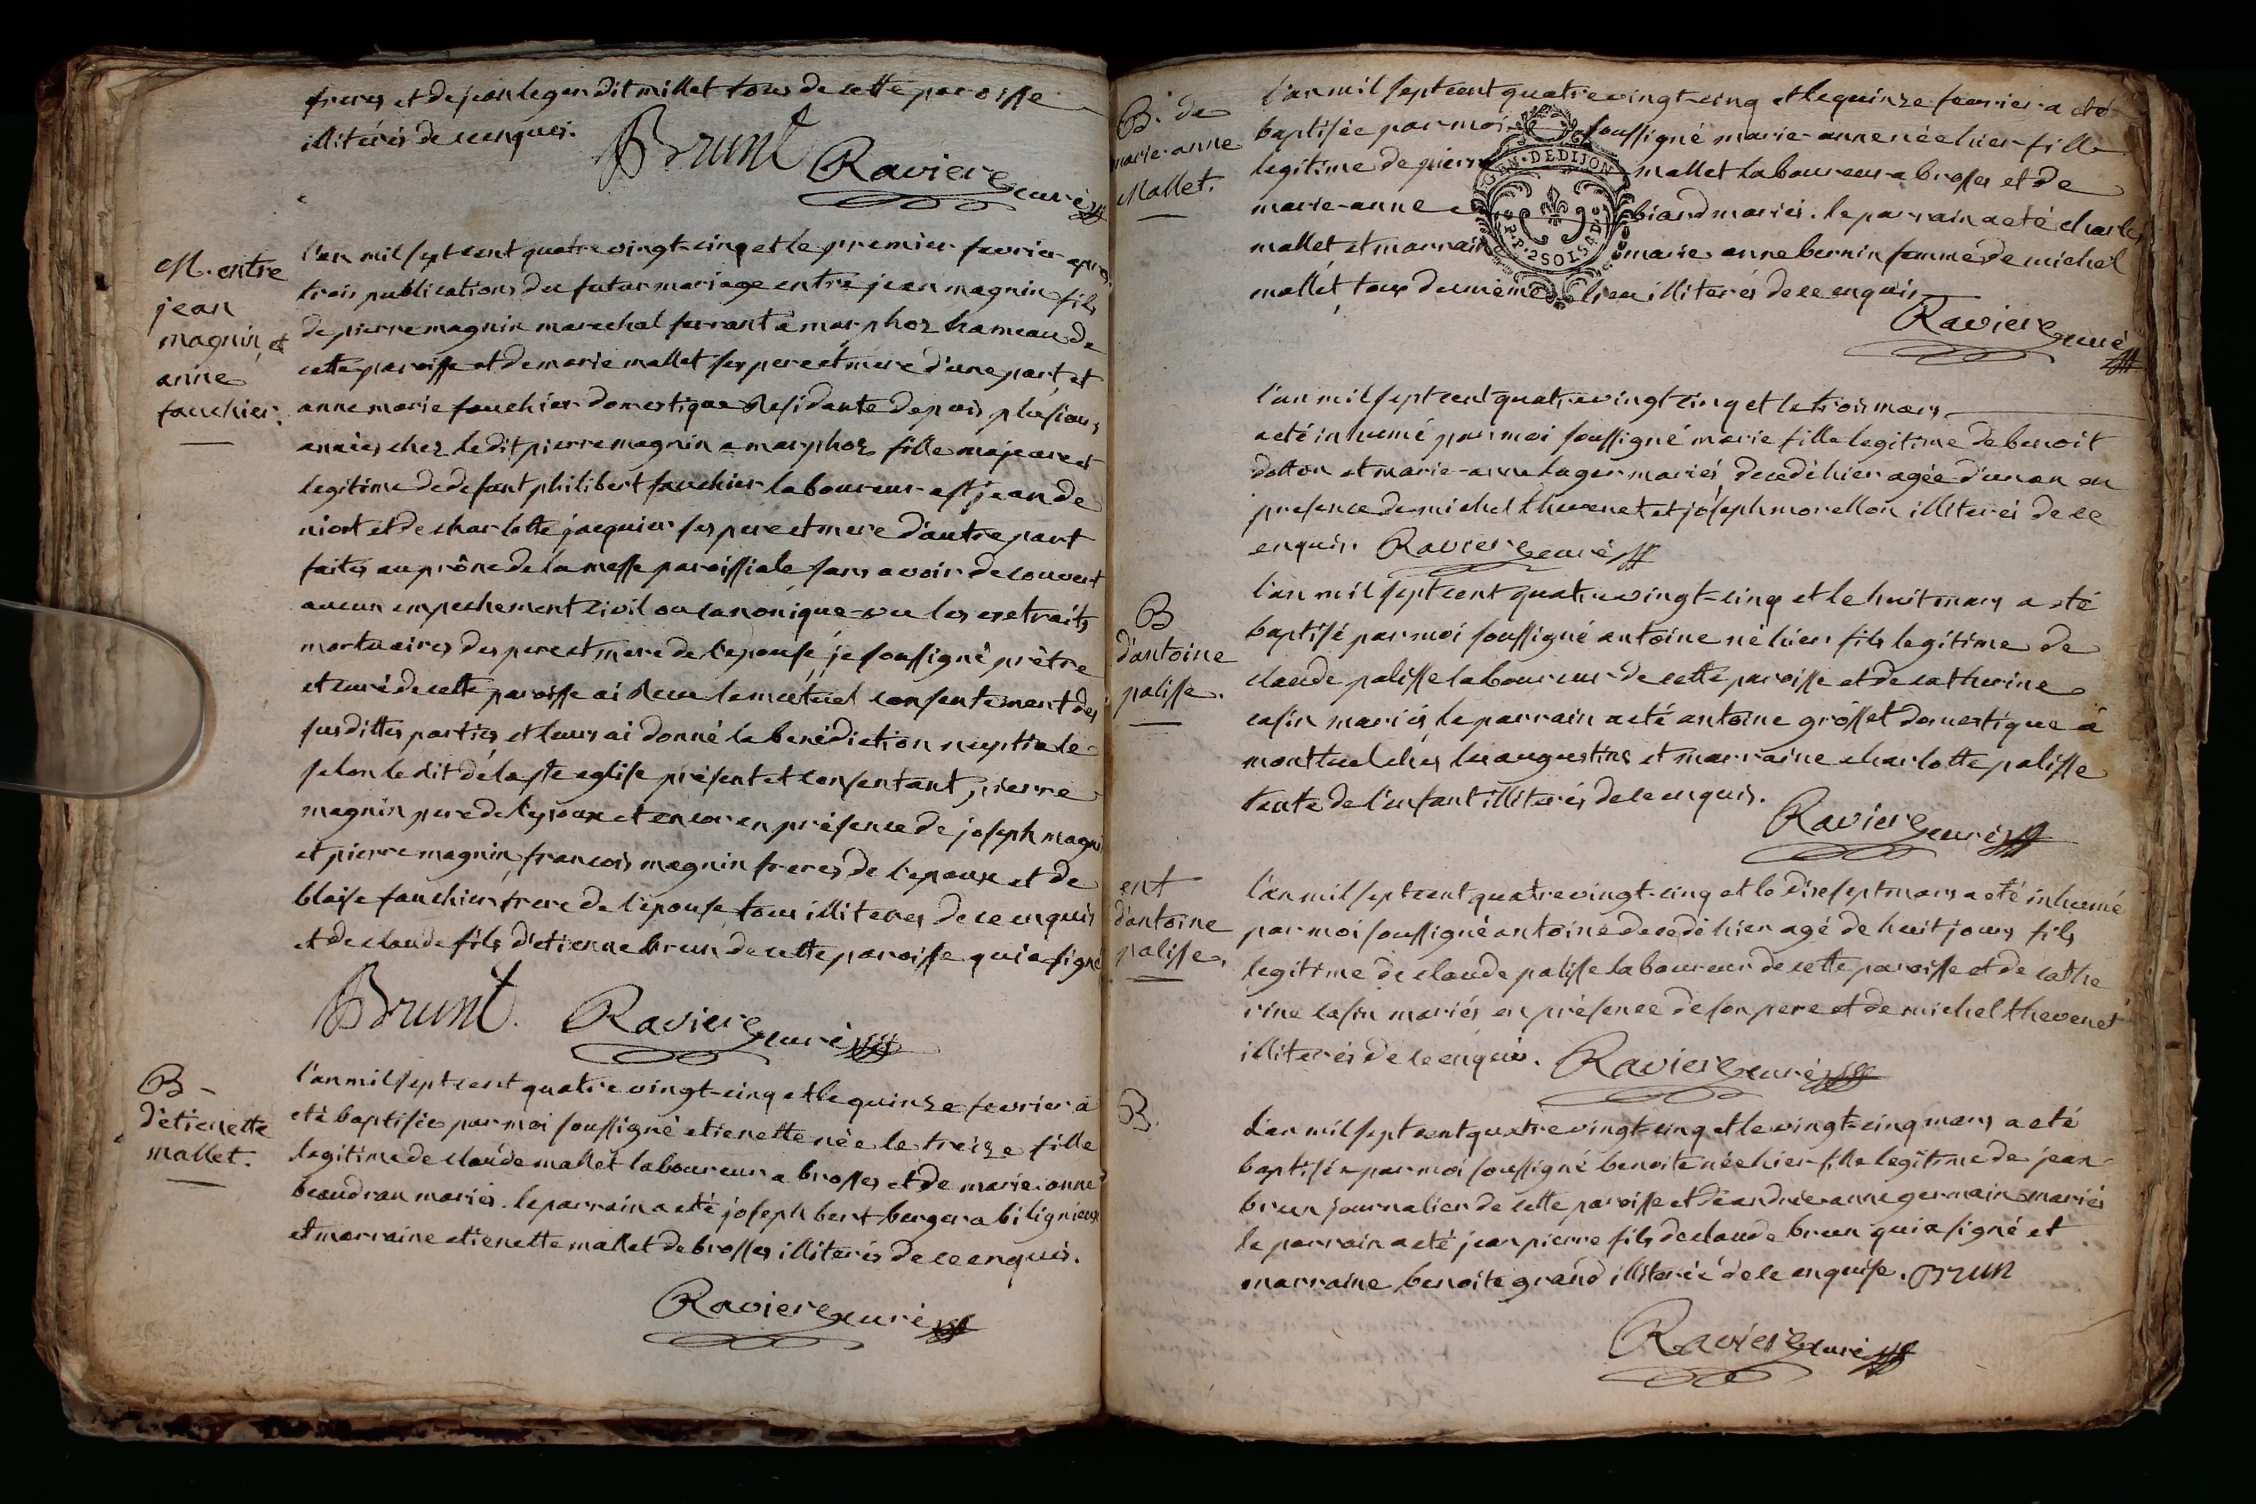 freres et de jean leger dit millet tous de cette paroisse
illiterés de ce enquis.
Brunt Raviere curé
M. entre
jean
magnin et
anne
fauchier.
l'an mil sept cent quatre vingt-cinq et le premier fevrier apres
trois publications du futur mariage entre jean magnin fils
de pierre magnin marechal ferrant a marphoz hameau de
cette paroisse et de marie mallet ses pere et mere d'une part, et
anne marie fauchier domestique Residante depuis plusieurs
années chez le dit pierre magnin a marphoz fille majeure et
legitime de defunt philibert fauchier laboureur a st jean de
niost et de charlotte jacquier ses pere et mere d'autre part
faites au prône de la messe paroissiale sans avoir decouvert
aucun empechement civil ou canonique vu les extraits
mortuaires des pere et mere de l'epouse, je soussigné prêtre
et curé de cette paroisse ai Recu le mutuel consentement des
susdittes parties et leurs ai donné la benediction nuptiale
selon le rit de la ste eglise présent et consentant, pierre
magnin pere de l'epoux et encor en présence de joseph magnin
et pierre magnin, francois magnin freres de l'epoux et de
blaise fauchier frere de l'épouse, tous illiterés de ce enquis
et de claude fils d'etienne brun de cette paroisse qui a signé
Brunt. Raviere curé
B
d'etienette
mallet.
l'an mil sept cent quatre vingt-cinq et le quinze fevrier a
eté baptisée par moi soussigné etienette née le treize fille
legitime de claude mallet laboureur a brosses et de marie anne
beaudran mariés. le parrain a eté joseph bert berger a biligneux
et marraine etienette mallet de brosses illiterés de ce enquis.
Raviere curé
B. de
marie-anne
Mallet.
l'an mil sept cent quatre vingt-cinq et le quinze fevrier a eté
baptisée par moi soussigné marie-anne née hier fille
legitime de pierre mallet laboureur a brosses et de
marie-anne biard mariés. le parrain a eté charles
mallet et marraine marie anne bernin femme de michel
mallet, tous du même lieu illiterés de ce enquis
GEN. DE DIJON
P.P. 2 SOLS 4 D
Raviere curé
l'an mil sept cent quatre vingt cinq et le trois mars
a eté inhumé par moi soussigné marie fille legitime de benoit
dotton et marie-anne luger mariés decedé hier agée d'un an en
presence de michel thevenet et joseph morellon illiterés de ce
enquis. Raviere curé
B
d'antoine
palisse.
l'an mil sept cent quatre vingt-cinq et le huit mars a eté
baptisé par moi soussigné antoine né hier fils legitime de
claude palisse laboureur de cette paroisse et de catherine
casin mariés, le parrain a eté antoine grosset domestique à
montluel chés les augustins et marraine charlotte palisse
tante de l'enfant illiterés de ce enquis.
Raviere curé
ent
d'antoine
palisse.
l'an mil sept cent quatre vingt-cinq et le dixsept mars a eté inhumé
par moi soussigné antoine decedé hier agé de huit jours fils
legitime de claude palisse laboureur de cette paroisse et de cathe
rine casin mariés en présence de son pere et de michel thevenet
illiterés de ce enquis. Raviere curé
B.
L'an mil sept cent quatre vingt-cinq et le vingt-cinq mars a eté
baptisée par moi soussigné benoite née hier fille legitime de jean
brun journalier de cette paroisse et d'andrée anne germain mariés
le parrain a eté jean pierre fils de claude brun qui a signé et
marraine benoite grand illiterée de ce enquise. Brun
Raviere curé